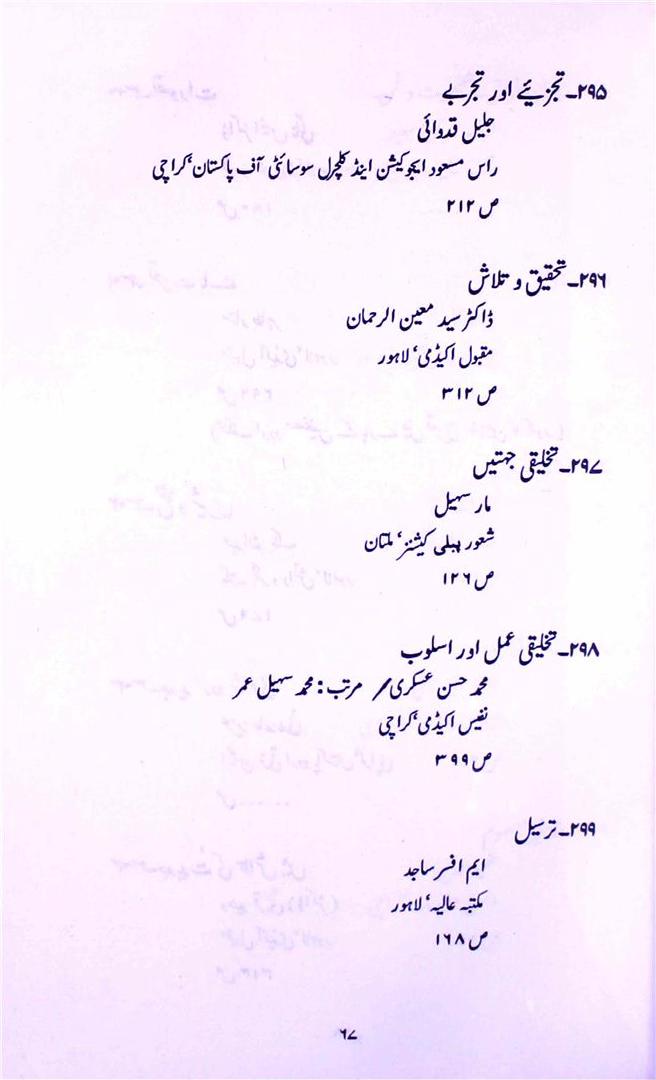 ۲۹۵۔ تجزیئے اور تجربے
جلیل قدوائی
راس مسعود ایجوکیشن اینڈ کلچرل سوسائٹی آف پاکستان، کراچی
ص ۲۱۲
۲۹۶۔ تحقیق و تلاش
ڈاکٹر سید معین الرحمان
مقبول اکیڈمی، لاہور
ص ۳۱۲
۲۹۷۔ تخلیقی جہتیں
مار سہیل
شعور پبلی کیشنز، ملتان
ص ۱۲۶
۲۹۸۔ تخلیقی عمل اور اسلوب
محمد حسن عسکری / مرتب : محمد سہیل عمر
نفیس اکیڈمی، کراچی
ص ۳۹۹
۲۹۹۔ ترسیل
ایم افسر ساجد
مکتبہ عالیہ، لاہور
ص ۱۶۸
۶۷